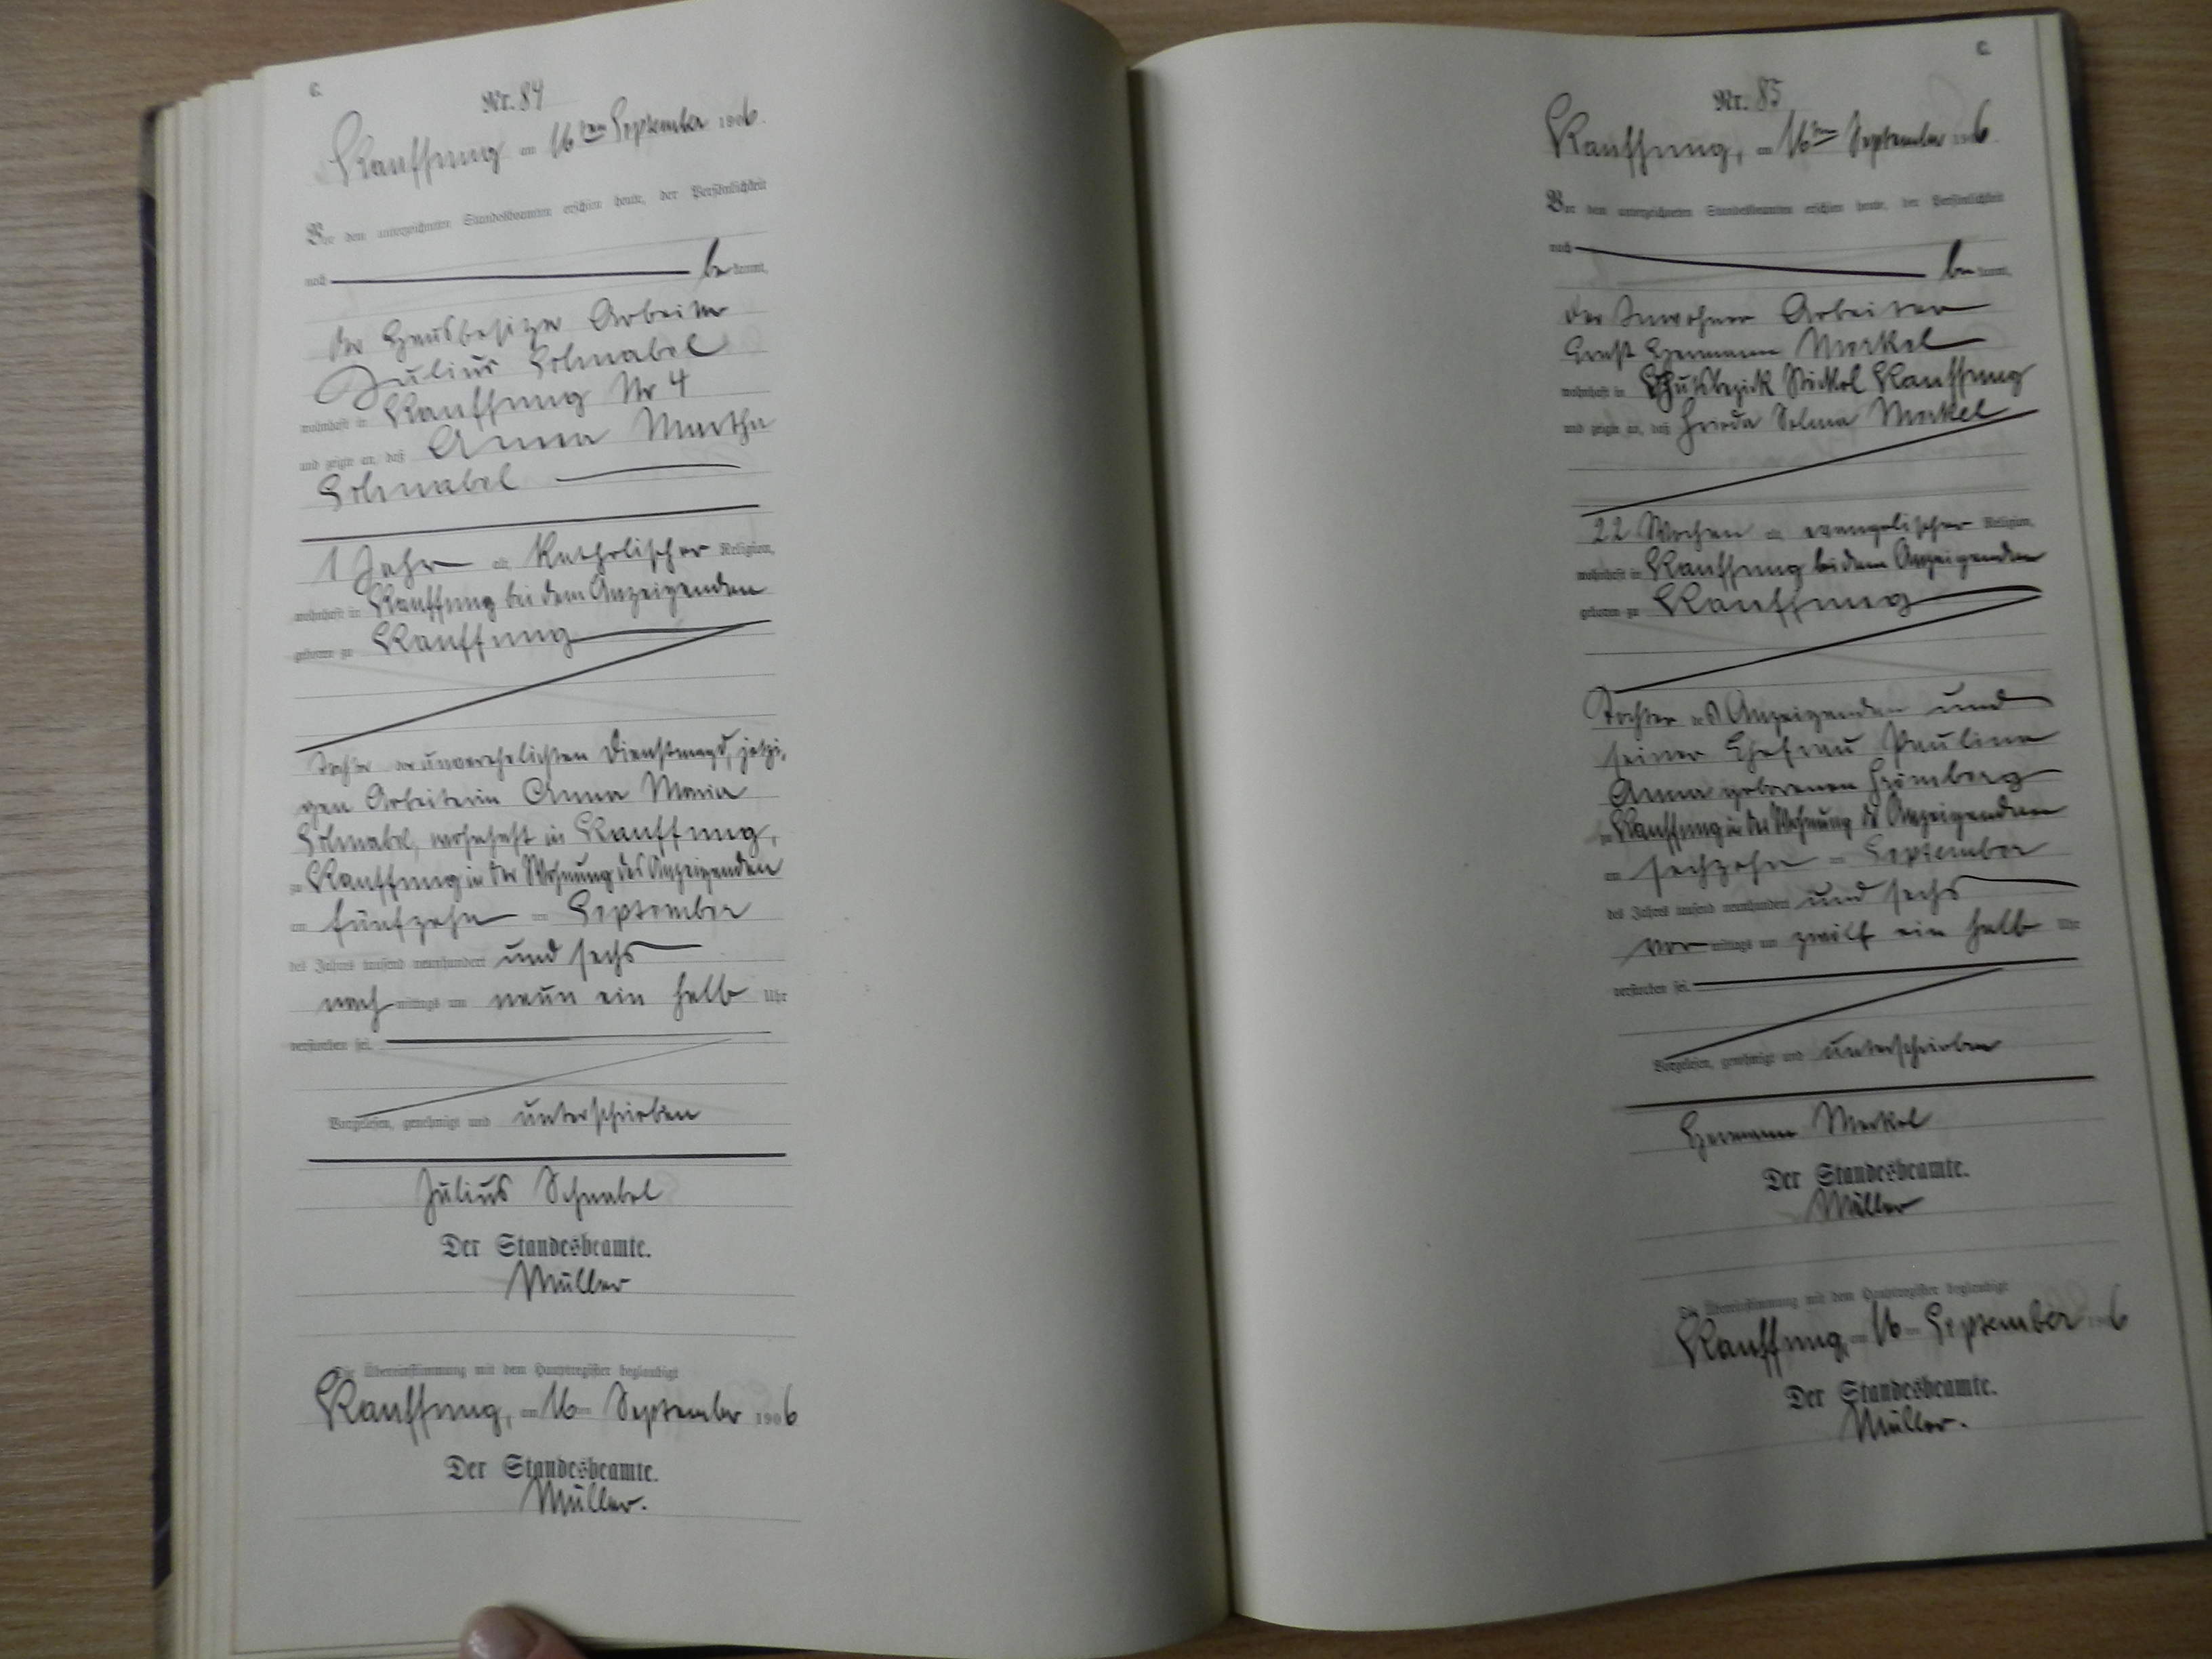 C.
Nr. 84
Kauffung am 16ten September 1906.
Vor dem unterzeichneten Standesbeamten erschien heute, der Persönlichkeit
nach be kannt,
der Hausbesitzer Arbeiter
Julius Schnabel
wohnhaft in Kauffung Nr 4
und zeigte an, daß Anna Martha
Schnabel
1 Jahr alt, katholischer Religion,
wohnhaft in Kauffung bei dem Anzeigenden
geboren zu Kauffung
Tochter der unverehelichten Dienstmagd, jetzi-
gen Arbeiterin Anna Maria
Schnabel, wohnhaft in Kauffung,
zu Kauffung in der Wohnung des Anzeigenden
am fünfzehn ten September
des Jahres tausend neunhundert und sechs
nach mittags um neun ein halb Uhr
verstorben sei.
Vorgelesen, genehmigt und unterschrieben
Julius Schnabel
Der Standesbeamte.
Müller
Die Übereinstimmung mit dem Hauptregister beglaubigt
Kauffung, am 16ten September 1906
Der Standesbeamte.
Müller.
C.
Nr. 85
Kauffung, am 16ten September 1906.
Vor dem unterzeichneten Standesbeamten erschien heute, der Persönlichkeit
nach be kannt,
der Inwohner Arbeiter
Ernst Hermann Merkel
wohnhaft in Gutsbezirk Kauffung
und zeigte an, daß Frieda Selma Merkel
22 Wochen alt, evangelischer Religion,
wohnhaft in Kauffung bei dem Anzeigenden
geboren zu Kauffung
Tochter des Anzeigenden und
seiner Ehefrau Pauline
Anna geborenen
zu Kauffung in der Wohnung des Anzeigenden
am sechzehn ten September
des Jahres tausend neunhundert und sechs
vor mittags um zwölf ein halb Uhr
verstorben sei.
Vorgelesen, genehmigt und unterschrieben
Hermann Merkel
Der Standesbeamte.
Müller
Die Übereinstimmung mit dem Hauptregister beglaubigt
Kauffung, am 16ten September 1906
Der Standesbeamte.
Müller.